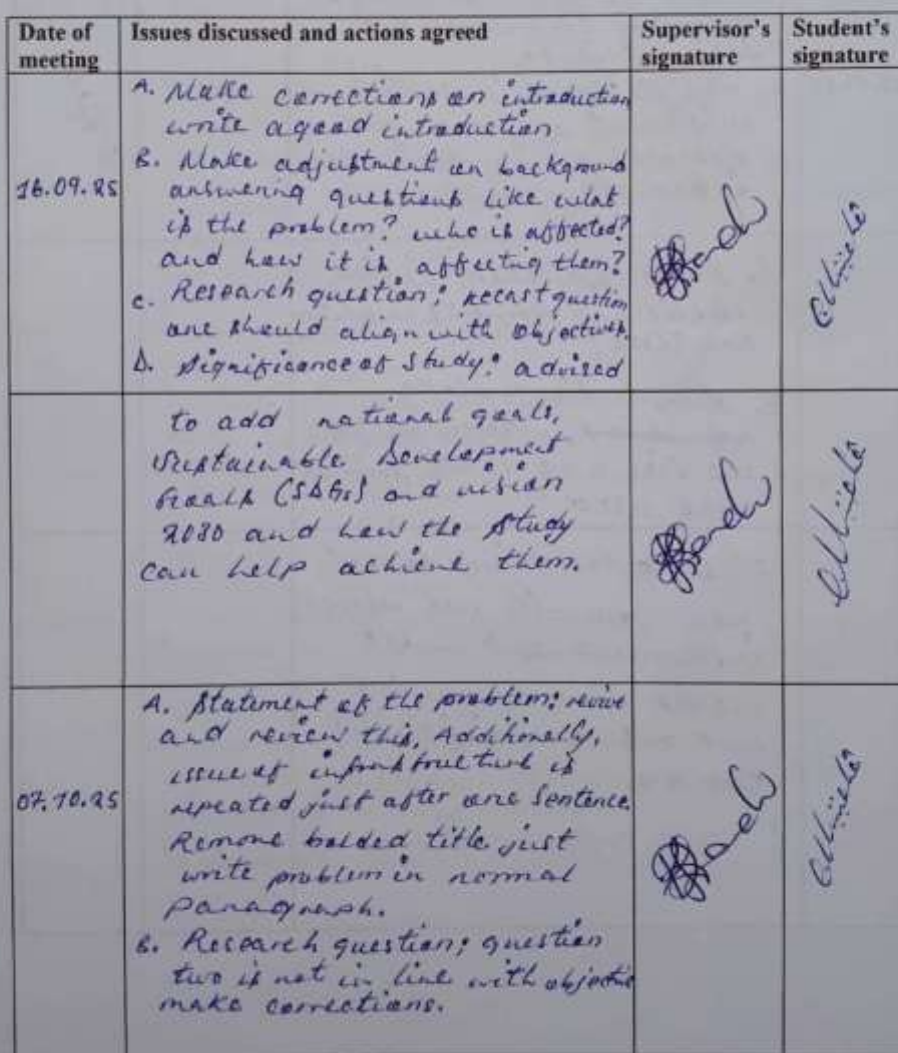 Date of meeting
Issues discussed and actions agreed
Supervisor's signature
Student's signature
16.09.25
A. Make corrections on introduction
write a good introduction
B. Make adjustment on background
answering questions like what
is the problem? who is affected?
and how it is affecting them?
C. Research question; recast question
one should align with objectives.
D. Significance of study: advised
to add national goals,
Sustainable Development
Goals (SDGs) and vision
2030 and how the study
can help achieve them.
07.10.25
A. Statement of the problem; revise
and review this. Additionally,
issue of infrastructure is
repeated just after one sentence.
Remove bolded title just
write problem in normal
paragraph.
B. Research question; question
two is not in line with objective
make corrections.